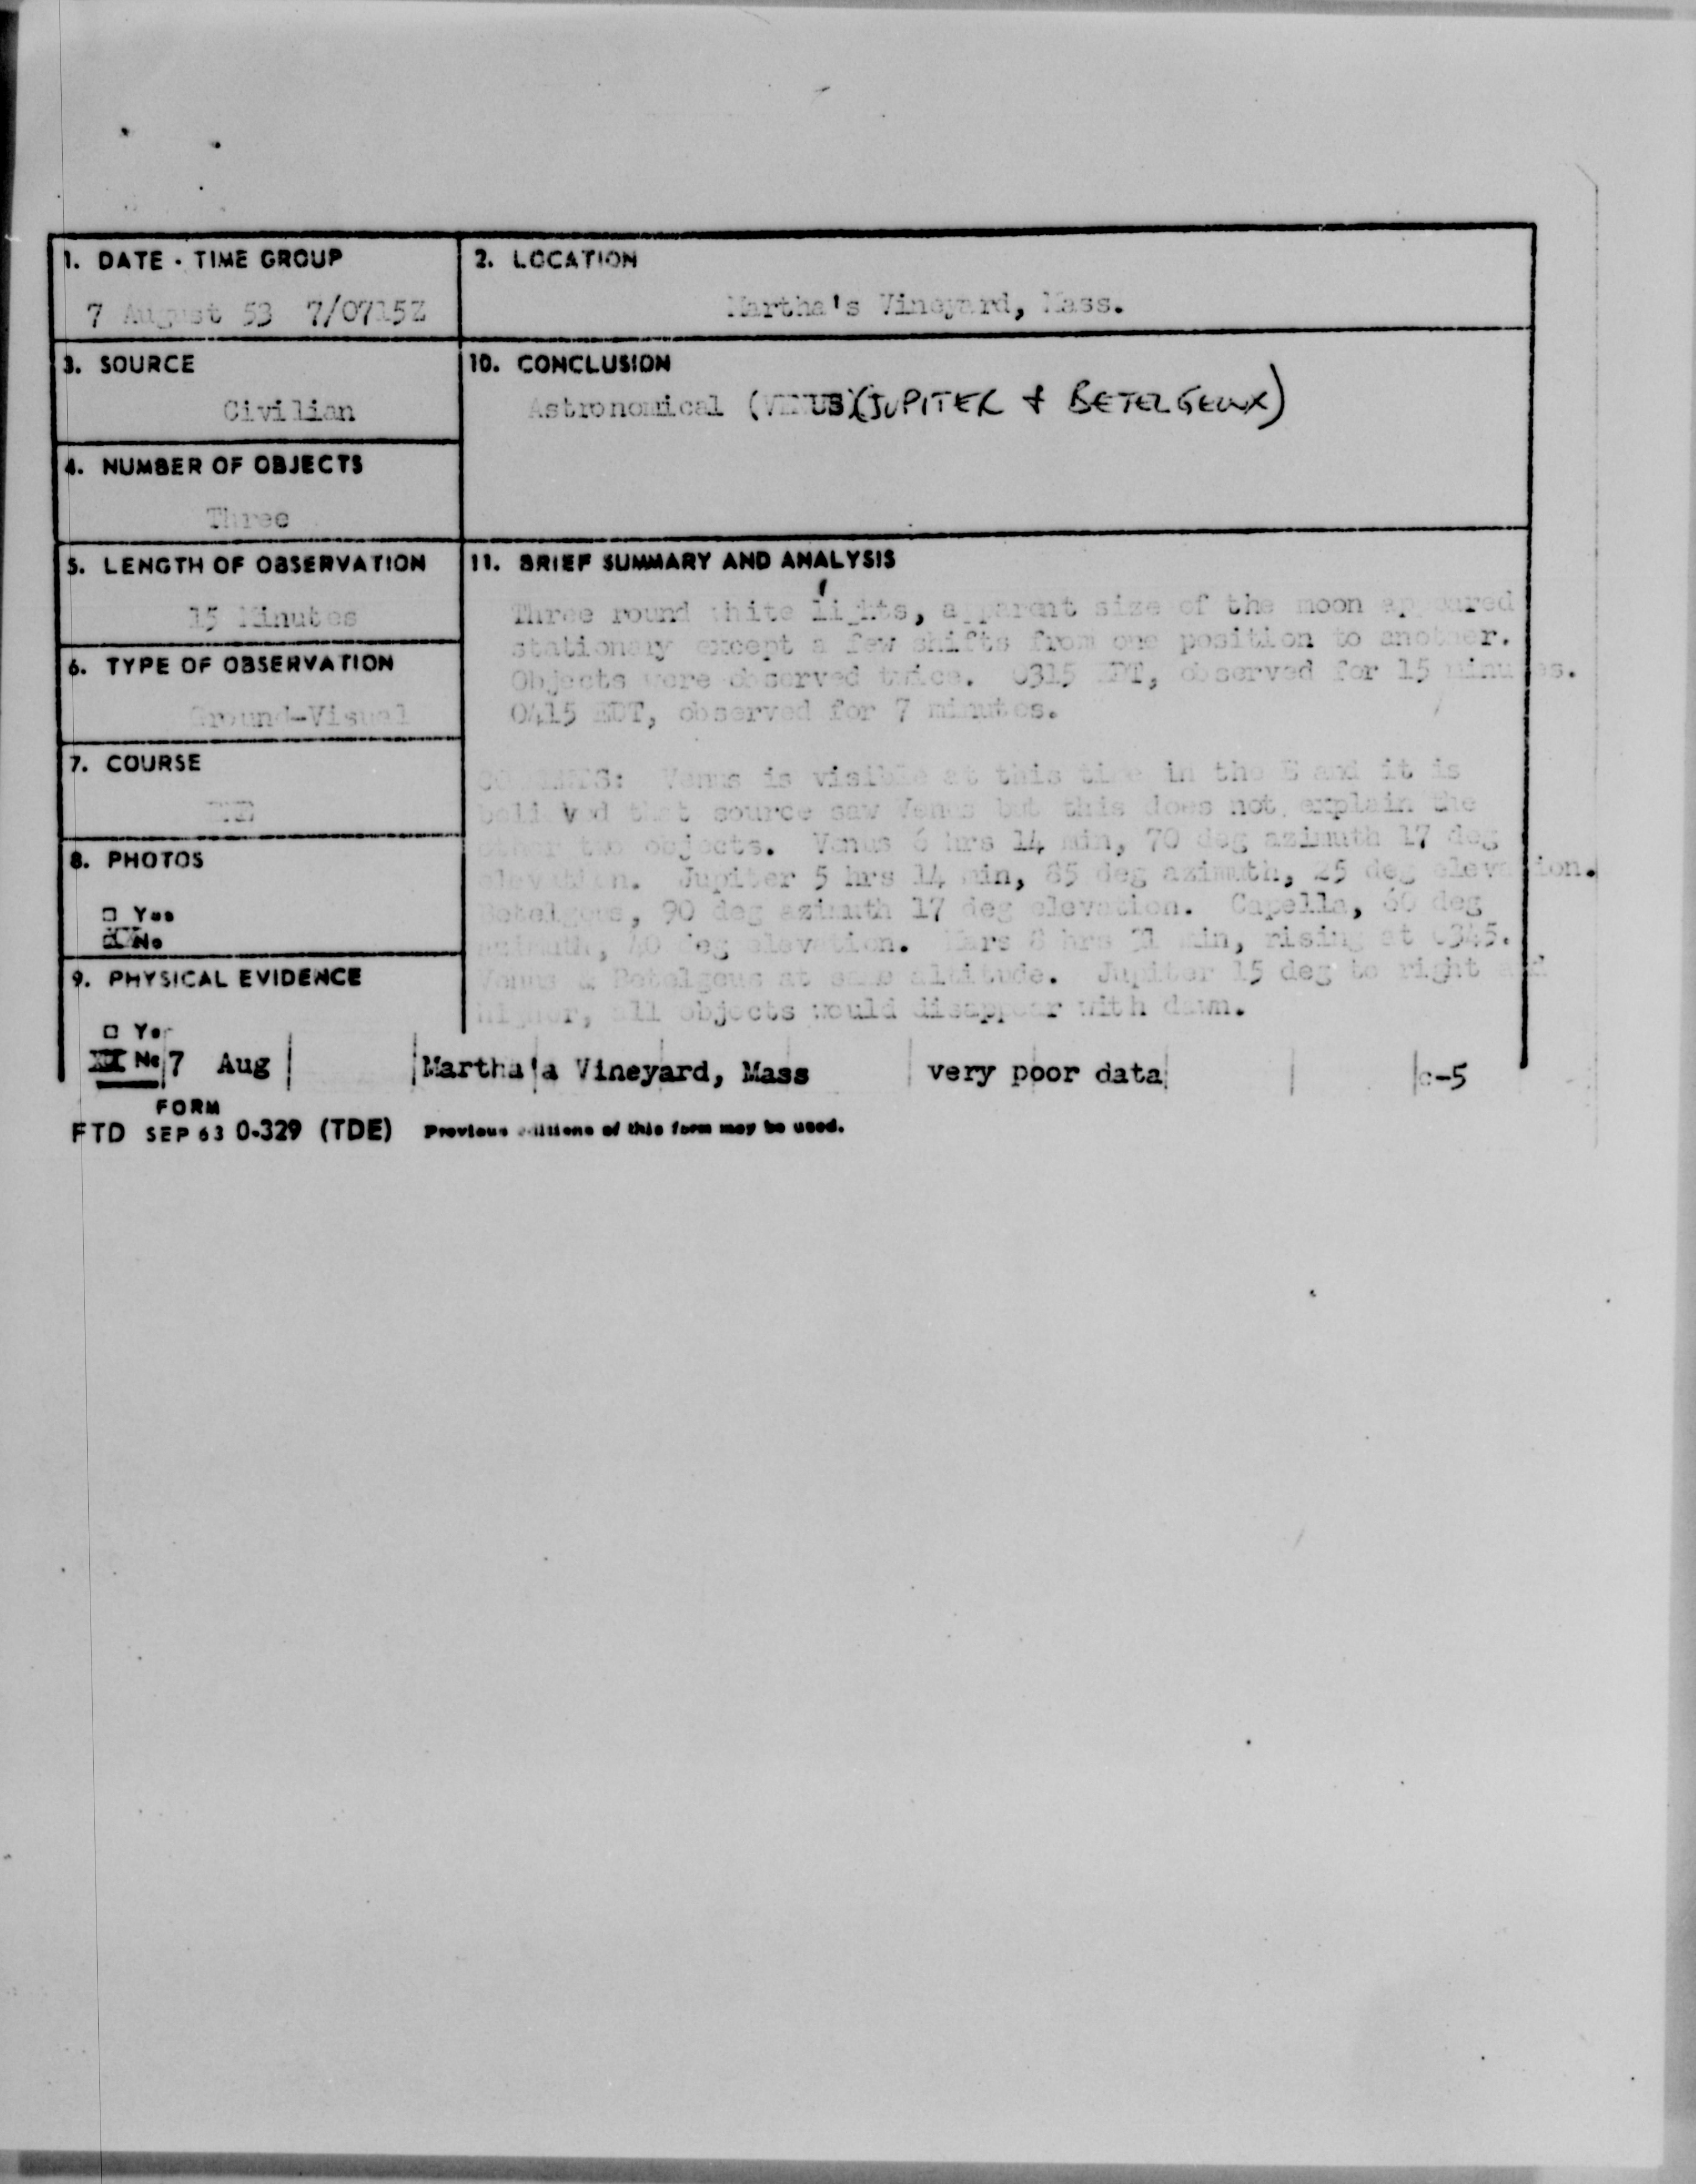 1. DATE - TIME GROUP
7 August 53 7/0715Z
2. LOCATION
Martha's Vineyard, Mass.
3. SOURCE
Civilian
10. CONCLUSION
Astronomical (VENUS)(JUPITER & BETELGEUX)
4. NUMBER OF OBJECTS
Three
5. LENGTH OF OBSERVATION
15 Minutes
11. BRIEF SUMMARY AND ANALYSIS
Three round white lights, apparent size of the moon appeared
stationary except a few shifts from one position to another.
Objects were observed twice. 0315 EDT, observed for 15 minutes.
0415 EDT, observed for 7 minutes.
6. TYPE OF OBSERVATION
Ground-Visual
7. COURSE
COMMENTS: Venus is visible at this time in the E and it is
believed that source saw Venus but this does not explain the
other two objects. Venus 6 hrs 14 min, 70 deg azimuth 17 deg
elevation. Jupiter 5 hrs 14 min, 85 deg azimuth, 25 deg elevation.
Betelgeus, 90 deg azimuth 17 deg elevation. Capella, 60 deg
azimuth, 40 deg elevation. Mars 8 hrs 31 min, rising at 0345.
Venus & Betelgeus at same altitude. Jupiter 15 deg to right and
higher, all objects would disappear with dawn.
8. PHOTOS
□ Yes
No
9. PHYSICAL EVIDENCE
□ Yes
XX No
7 Aug Martha'a Vineyard, Mass very poor data c-5
FORM
FTD SEP 63 0-329 (TDE) Previous editions of this form may be used.